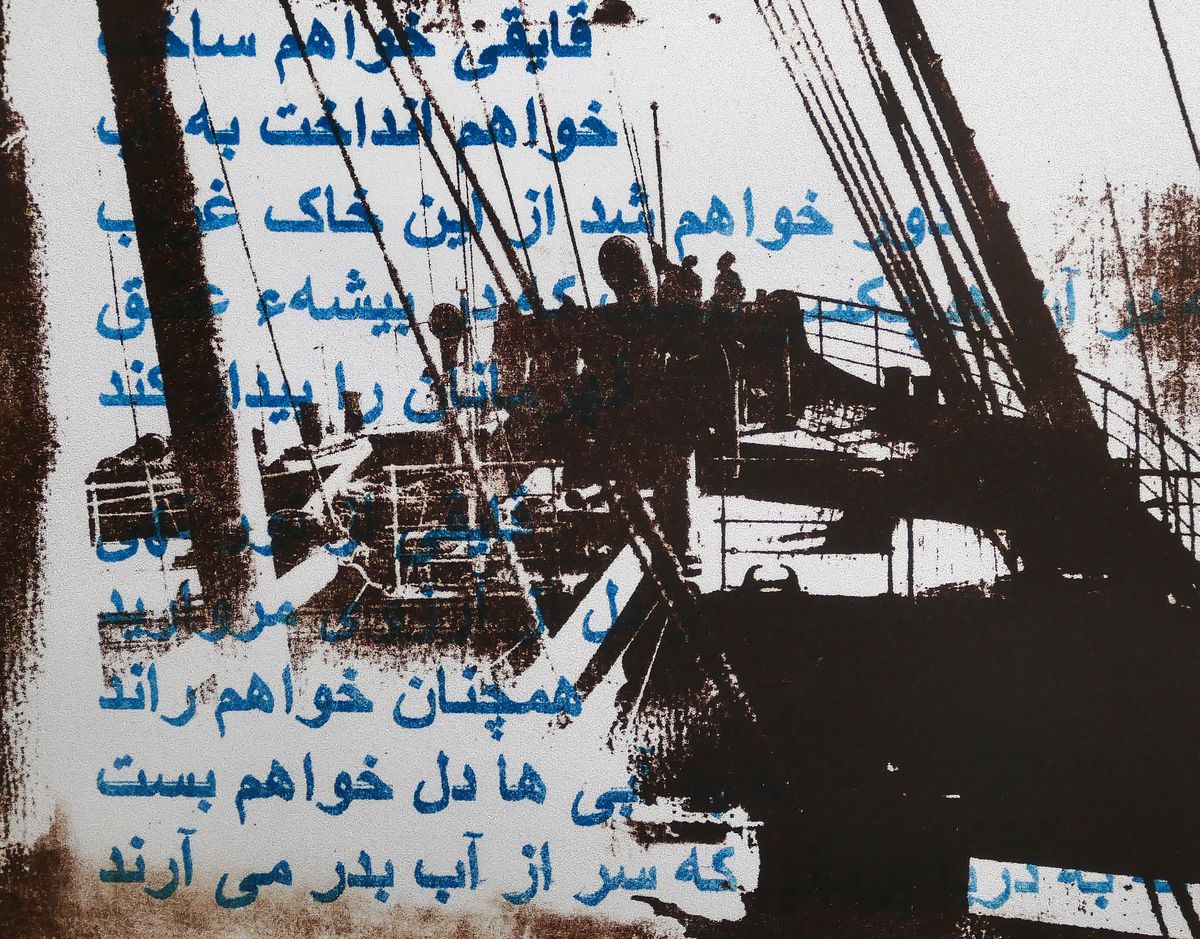 قایقی خواهم ساخت
خواهم انداخت به آب
دور خواهم شد از این خاک غریب
در آن که در بیشهء عشق
قهرمانان را بیدار کند
قایق از تور تهی
دل از آرزوی مروارید
همچنان خواهم راند
ها دل خواهم بست
به که سر از آب بدر می آرند